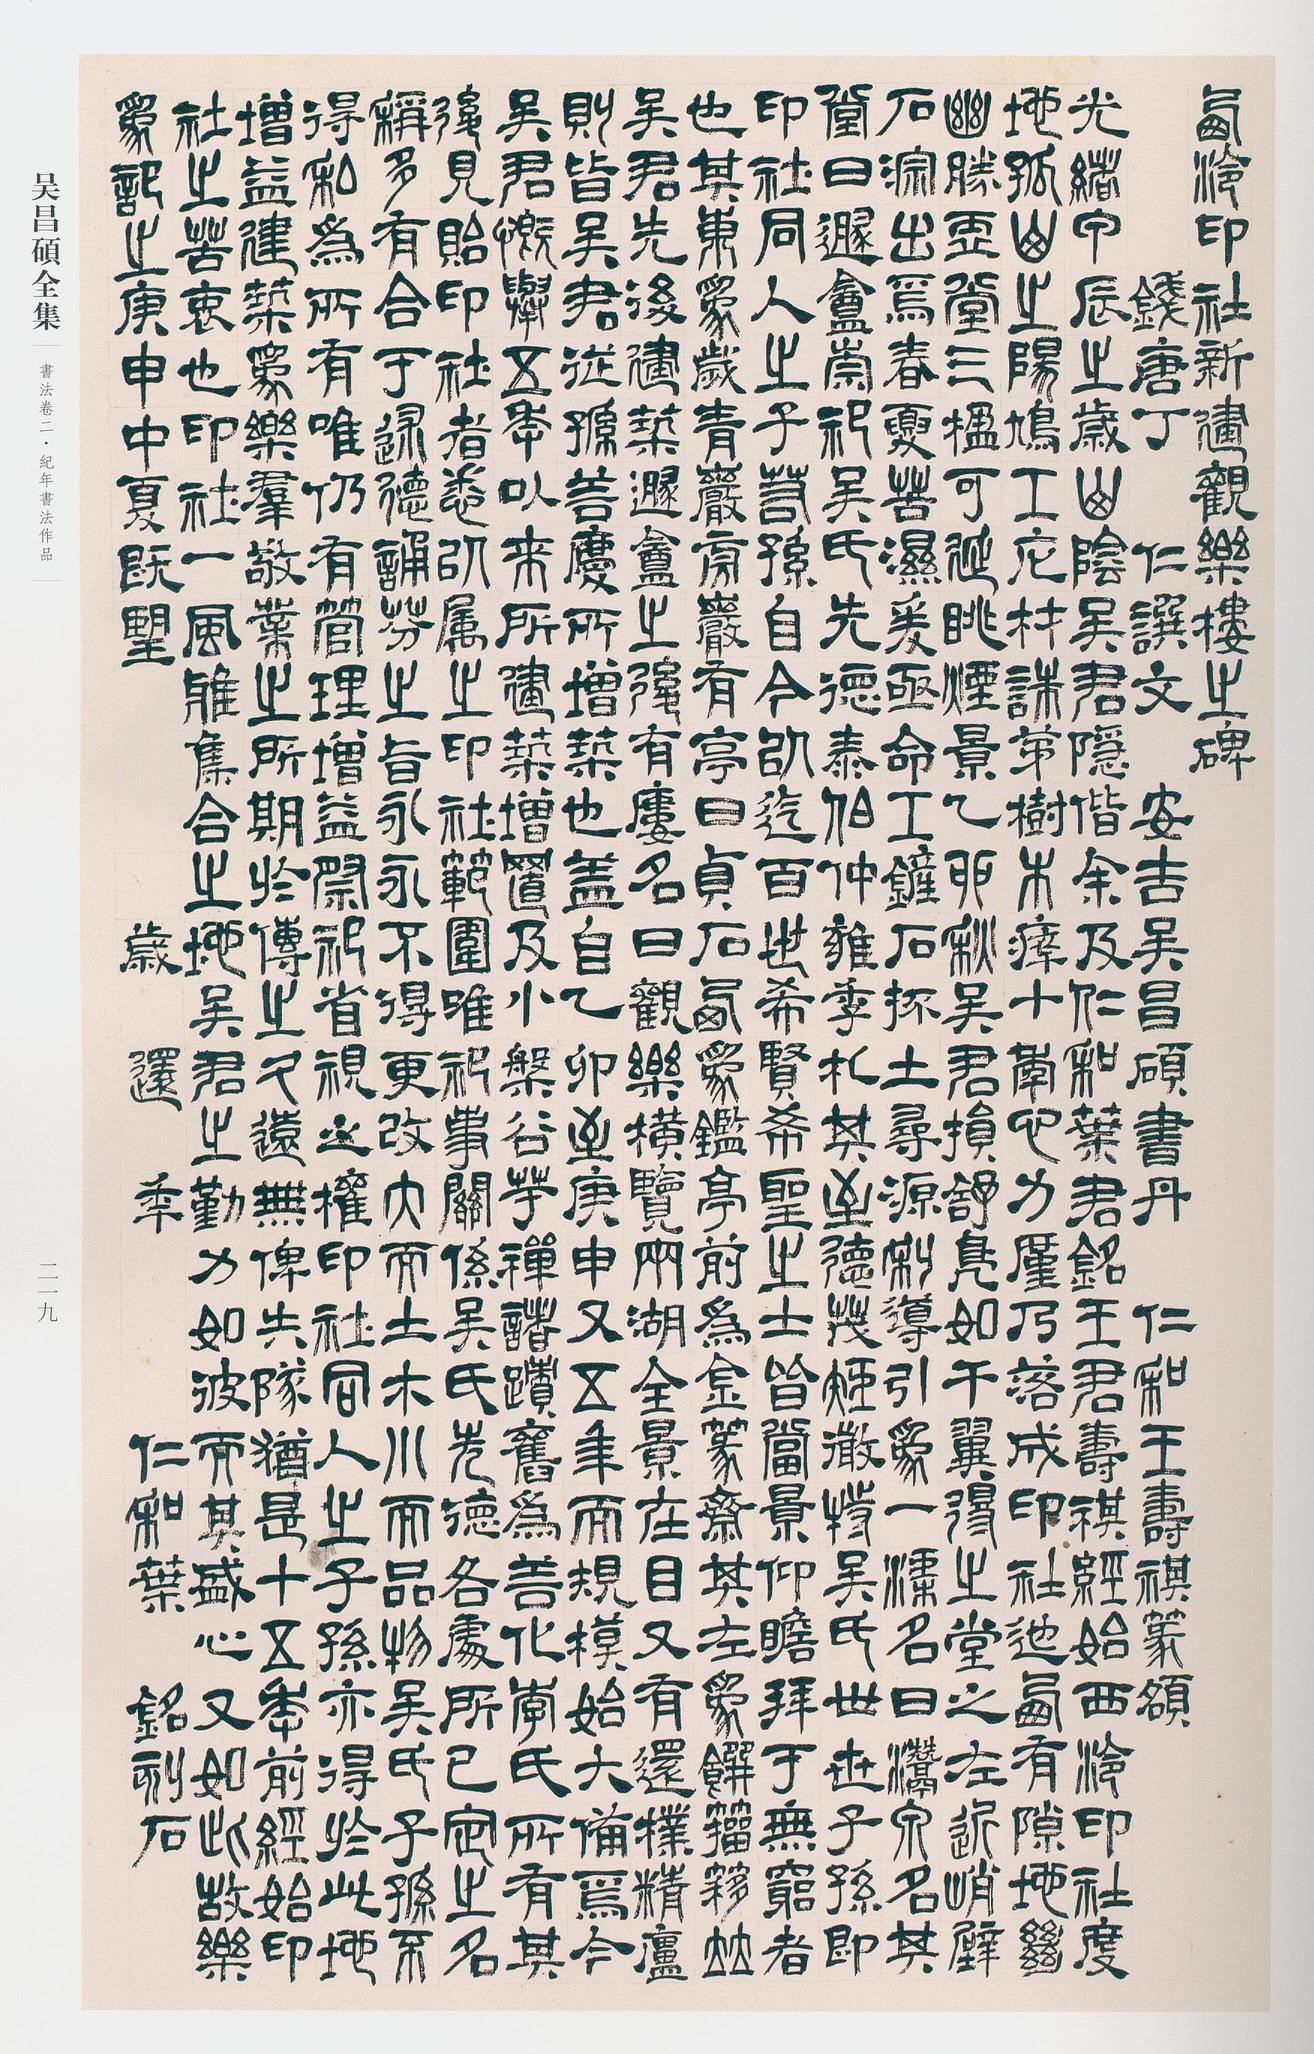 西泠印社新建觀樂樓之碑
錢唐丁仁譔文 安吉吴昌碩書丹 仁和王壽祺篆額
光緒甲辰之歲山陰吴君隱偕余及仁和葉君銘王君壽祺經始西泠印社度
地孤山之陽鳩工庀材誅茅樹木瘁十年心力廑乃落成印社迆西有隙地
幽勝亞堂三楹可延眺煙景乙卯秋吴君損舒鳧如干翼得之堂之左近峭壁
石淙出焉春夏苦濕爰亟命工鑱石抔土尋源利導引爲一潭名曰潛泉名其
堂曰遯盦崇祀吴氏先德泰伯仲雍季札其至德茂矩激揚吴氏世世子孫即
印社同人之子若孫自今以迄百世希賢希聖之士皆當景仰瞻拜于無窮者
也其東爲歲青巖旁巖有亭曰貞石西爲鑑亭前爲金篆齋其左爲饌籀簃竝
吴君先後建築遯盦之後有廔名曰觀樂橫覽兩湖全景在目又有還樸精廬
則皆吴君從孫善慶所增築也蓋自乙卯至庚申又五年而規模始大備焉今
吴君慨舉五年以來所建築增置及小盤谷芋禪諸蹟舊爲善化李氏所有其
後見貽印社者悉以屬之印社範圍唯祀事關係吴氏先德各處所已定之名
稱多有合于述德誦芬之旨永永不得更改大而土木小而品物吴氏子孫不
得私爲所有唯仍有管理增益祭祀省視之權印社同人之子孫亦得於此地
增益建築爲樂羣敬業之所期於傳之久遠無俾失隊猶是十五年前經始印
社之苦衷也印社一風雅集合之地吴君之勤力如彼而其盛心又如此故樂
爲記之庚申中夏既望 歲還年 仁和葉銘刻石
吴昌碩全集
書法卷二·紀年書法作品
二一九